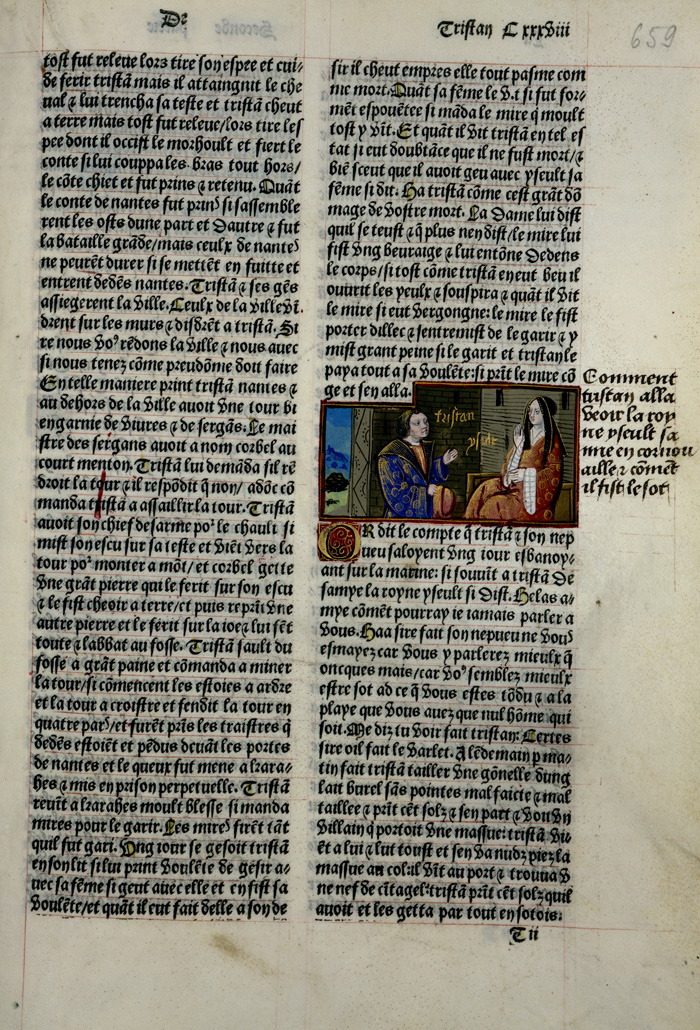 De
Tristan C xxxviii
659
tost fut releue lors tire son espee et cui⸗
de ferir tristā mais il attaingnit le che
ual ⁊ lui trencha sa teste et tristā cheut
a terre mais tost fut releue/lors tire les
pee dont il occist le morhoult et fiert le
conte si lui couppa les bras tout hors/
le cōte chiet et fut prins ⁊ retenu. Quāt
le conte de nantes fut prins si sassemble
rent les osts dune part et dautre ⁊ fut
la bataille grāde/mais ceulx de nantes
ne peurēt durer si se mettēt en fuitte et
entrent dedēs nantes. Tristā ⁊ ses gēs
assiegerent la ville. Ceulx de la ville vī⸗
drent sur les murs ⁊ disdrēt a tristā. Si
re nous voꝰ rēdons la ville ⁊ nous auec
si nous tenez cōme preudōme doit faire
En telle maniere print tristā nantes ⁊
au dehors de la ville auoit vne tour bi
en garnie de viures ⁊ de sergās. Le mai
stre des sergans auoit a nom corbel au
court menton. Tristā lui demāda sil rē
droit la tour ⁊ il respōdit q̄ non/ adōc cō
manda tristā a assaillir la tour. Tristā
auoit son chief desarme poꝛ le chault si
mist son escu sur sa teste et viēt vers la
tour poꝛ monter a mōt/ et corbel gette
vne grāt pierre qui le ferit sur son escu
⁊ le fist cheoir a terre/et puis reprīt vne
autre pierre et le ferit sur la ioe ⁊ lui fēt
toute ⁊ labbat au fosse. Tristā sault du
fosse a grāt paine et cōmanda a miner
la tour/si cōmencent les estoies a ardre
et la tour a croistre et fendit la tour en
quatre pars/et furēt prīs les traistres q̄
dedēs estoiēt et pēdus deuāt les portes
de nantes et le queux fut mene a lzara⸗
hes ⁊ mis en prison perpetuelle. Tristā
reuīt a lzarahes moult blesse si manda
mires pour le garir. Les mires firēt tāt
quil fut gari. Vng iour se gesoit tristā
en son lit si lui print voulēte de gesir a⸗
uec sa fēme si geut auec elle et en fist sa
voulēte/et quāt il eut fait delle a son de
sir il cheut empres elle tout pasme com
me mort. Quāt sa fēme le vit si fut for⸗
mēt espouētee si māda le mire q̄ moult
tost y vīt. Et quāt il vit tristā en tel es
tat si eut doubtāce que il ne fust mort/⁊
biē sceut que il auoit geu auec yseult sa
fēme si dit. Ha tristā cōme cest grāt dō
mage de vostre mort. La dame lui dist
quil se teust ⁊ q̄ plus nen dist/le mire lui
fist vng beuraige ⁊ lui entōne dedens
le corps/si tost cōme tristā en eut beu il
ouurit les yeulx ⁊ souspira ⁊ quāt il vit
le mire si eut vergongne: le mire le fist
porter dillec ⁊ sentremist de le garir ⁊ y
mist grant peine si le garit et tristan le
paya tout a sa voulēte: si prīt le mire cō
ge et sen alla.
tristan
yseut
Comment
tristan alla
veoir la roy
ne yseult sa
mie en cornou
aille ⁊ cōmēt
il fist le sot
OR dit le compte q̄ tristā ⁊ son nep
ueu saloyent vng iour esbanoy⸗
ant sur la marine: si souuīt a tristā de
sa mye la royne yseult si dist. Helas a⸗
mye cōmēt pourray ie iamais parler a
vous. Haa sire fait son nepueu ne vous
esmayez car vous y parlerez mieulx q̄
oncques mais/car voꝰ semblez mieulx
estre sot ad ce q̄ vous estes tōdu ⁊ a la
playe que vous auez que nul hōme qui
soit. Me diz tu voir fait tristan. Certes
sire oil fait le varlet. A lēdemain p ma⸗
tin fait tristā tailler vne gōnelle dung
lait burel sās pointes mal faicte ⁊ mal
taillee ⁊ prīt cēt solz ⁊ sen part ⁊ vit vn
villain q̄ portoit vne massue: tristā vi⸗
ēt a lui ⁊ lui toust et sen va nudz piez la
massue au col: il vīt au port ⁊ trouua v
ne nef de cītagel: tristā prīt cēt solz quil
auoit et les getta par tout en sotois.
T ii